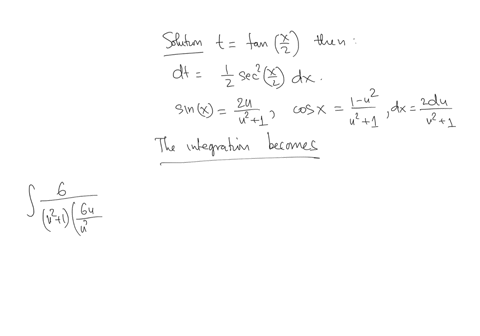 Solution t = tan(x/2) then:
dt = 1/2 sec²(x/2) dx.
sin(x) = 2u/(u²+1), cos x = (1-u²)/(u²+1), dx = 2du/(u²+1)
The integration becomes
∫ 6/((u²+1)(6u/u²